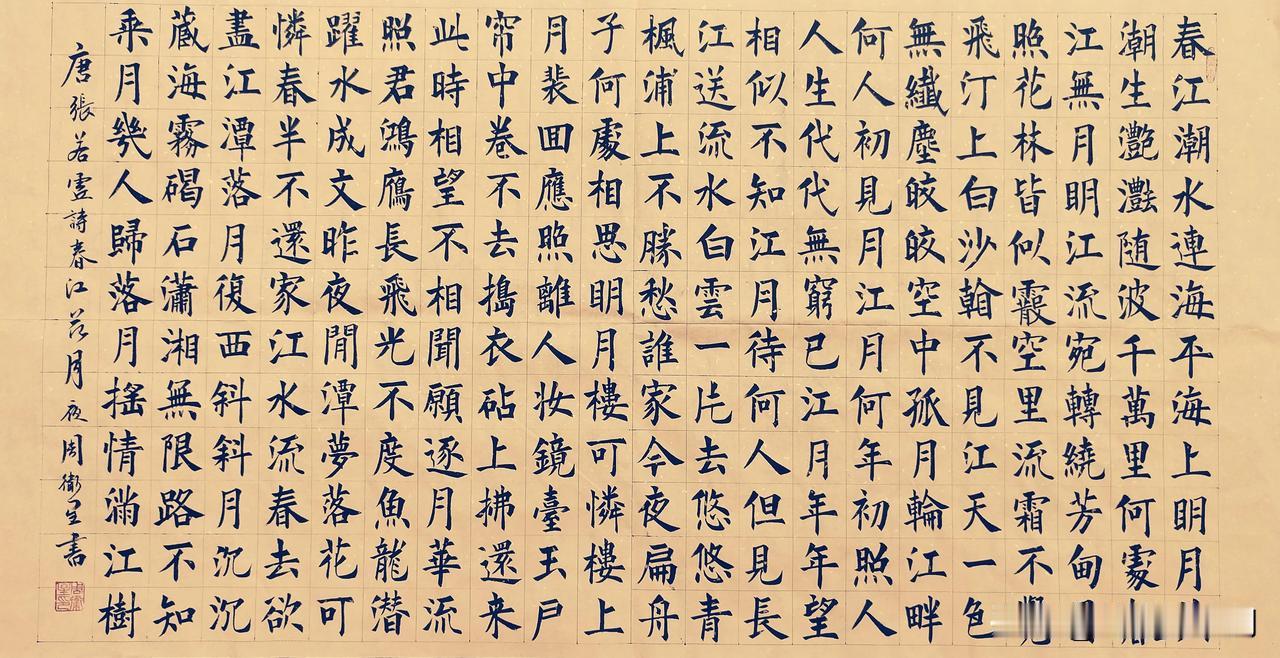 春江潮水連海平海上明月
潮生灔灧随波千萬里何處
江無月明江流宛轉繞芳甸
照花林皆似霰空里流霜不
飛汀上白沙翰不見江天一色
無纖塵皎皎空中孤月輪江畔
何人初見月江月何年初照人
人生代代無窮已江月年年望
相似不知江月待何人但見長
江送流水白雲一片去悠悠青
楓浦上不勝愁誰家今夜扁舟
子何處相思明月樓可憐樓上
月裴回應照離人妝鏡臺玉戶
帘中卷不去搗衣砧上拂還来
此時相望不相聞願逐月華流
照君鴻鴈長飛光不度魚龍潛
躍水成文昨夜閒潭夢落花可
憐春半不還家江水流春去欲
盡江潭落月復西斜斜月沉沉
藏海霧碣石瀟湘無限路不知
乘月幾人歸落月搖情滿江樹
唐張若虛詩春江花月夜周衛星書